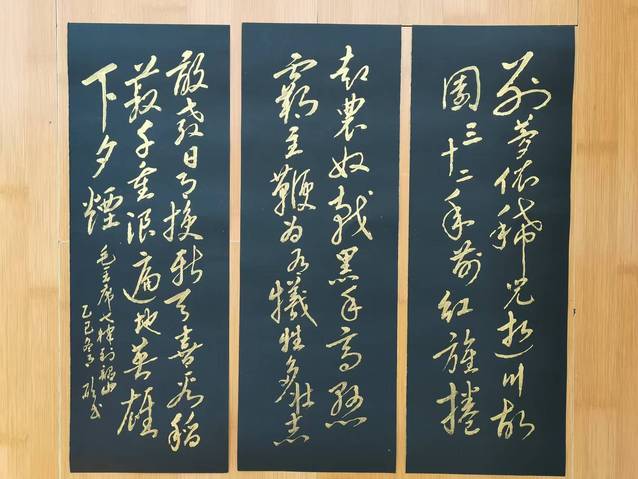 别夢依稀咒逝川故
園三十二年前红旗捲
起農奴戟黑手高悬
霸主鞭为有犧牲多壮志
敢教日月换新天喜看稻
菽千重浪遍地英雄
下夕煙
毛主席七律到韶山
乙巳冬月